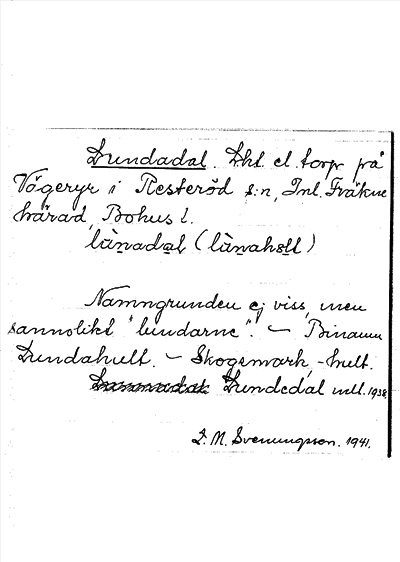 Lundadal. Lht el. torp på
Vågeryr i Resteröd s:n, Inl. Fräkne
härad, Bohus l.
lànadal (lànahslt)
Namngrunden ej viss, men
sannolikt "lundarne". – Binamn
Lundahult. – Skogsmark, -hult.
Lundedal utt. 1938
S. M. Svenungsson. 1941.